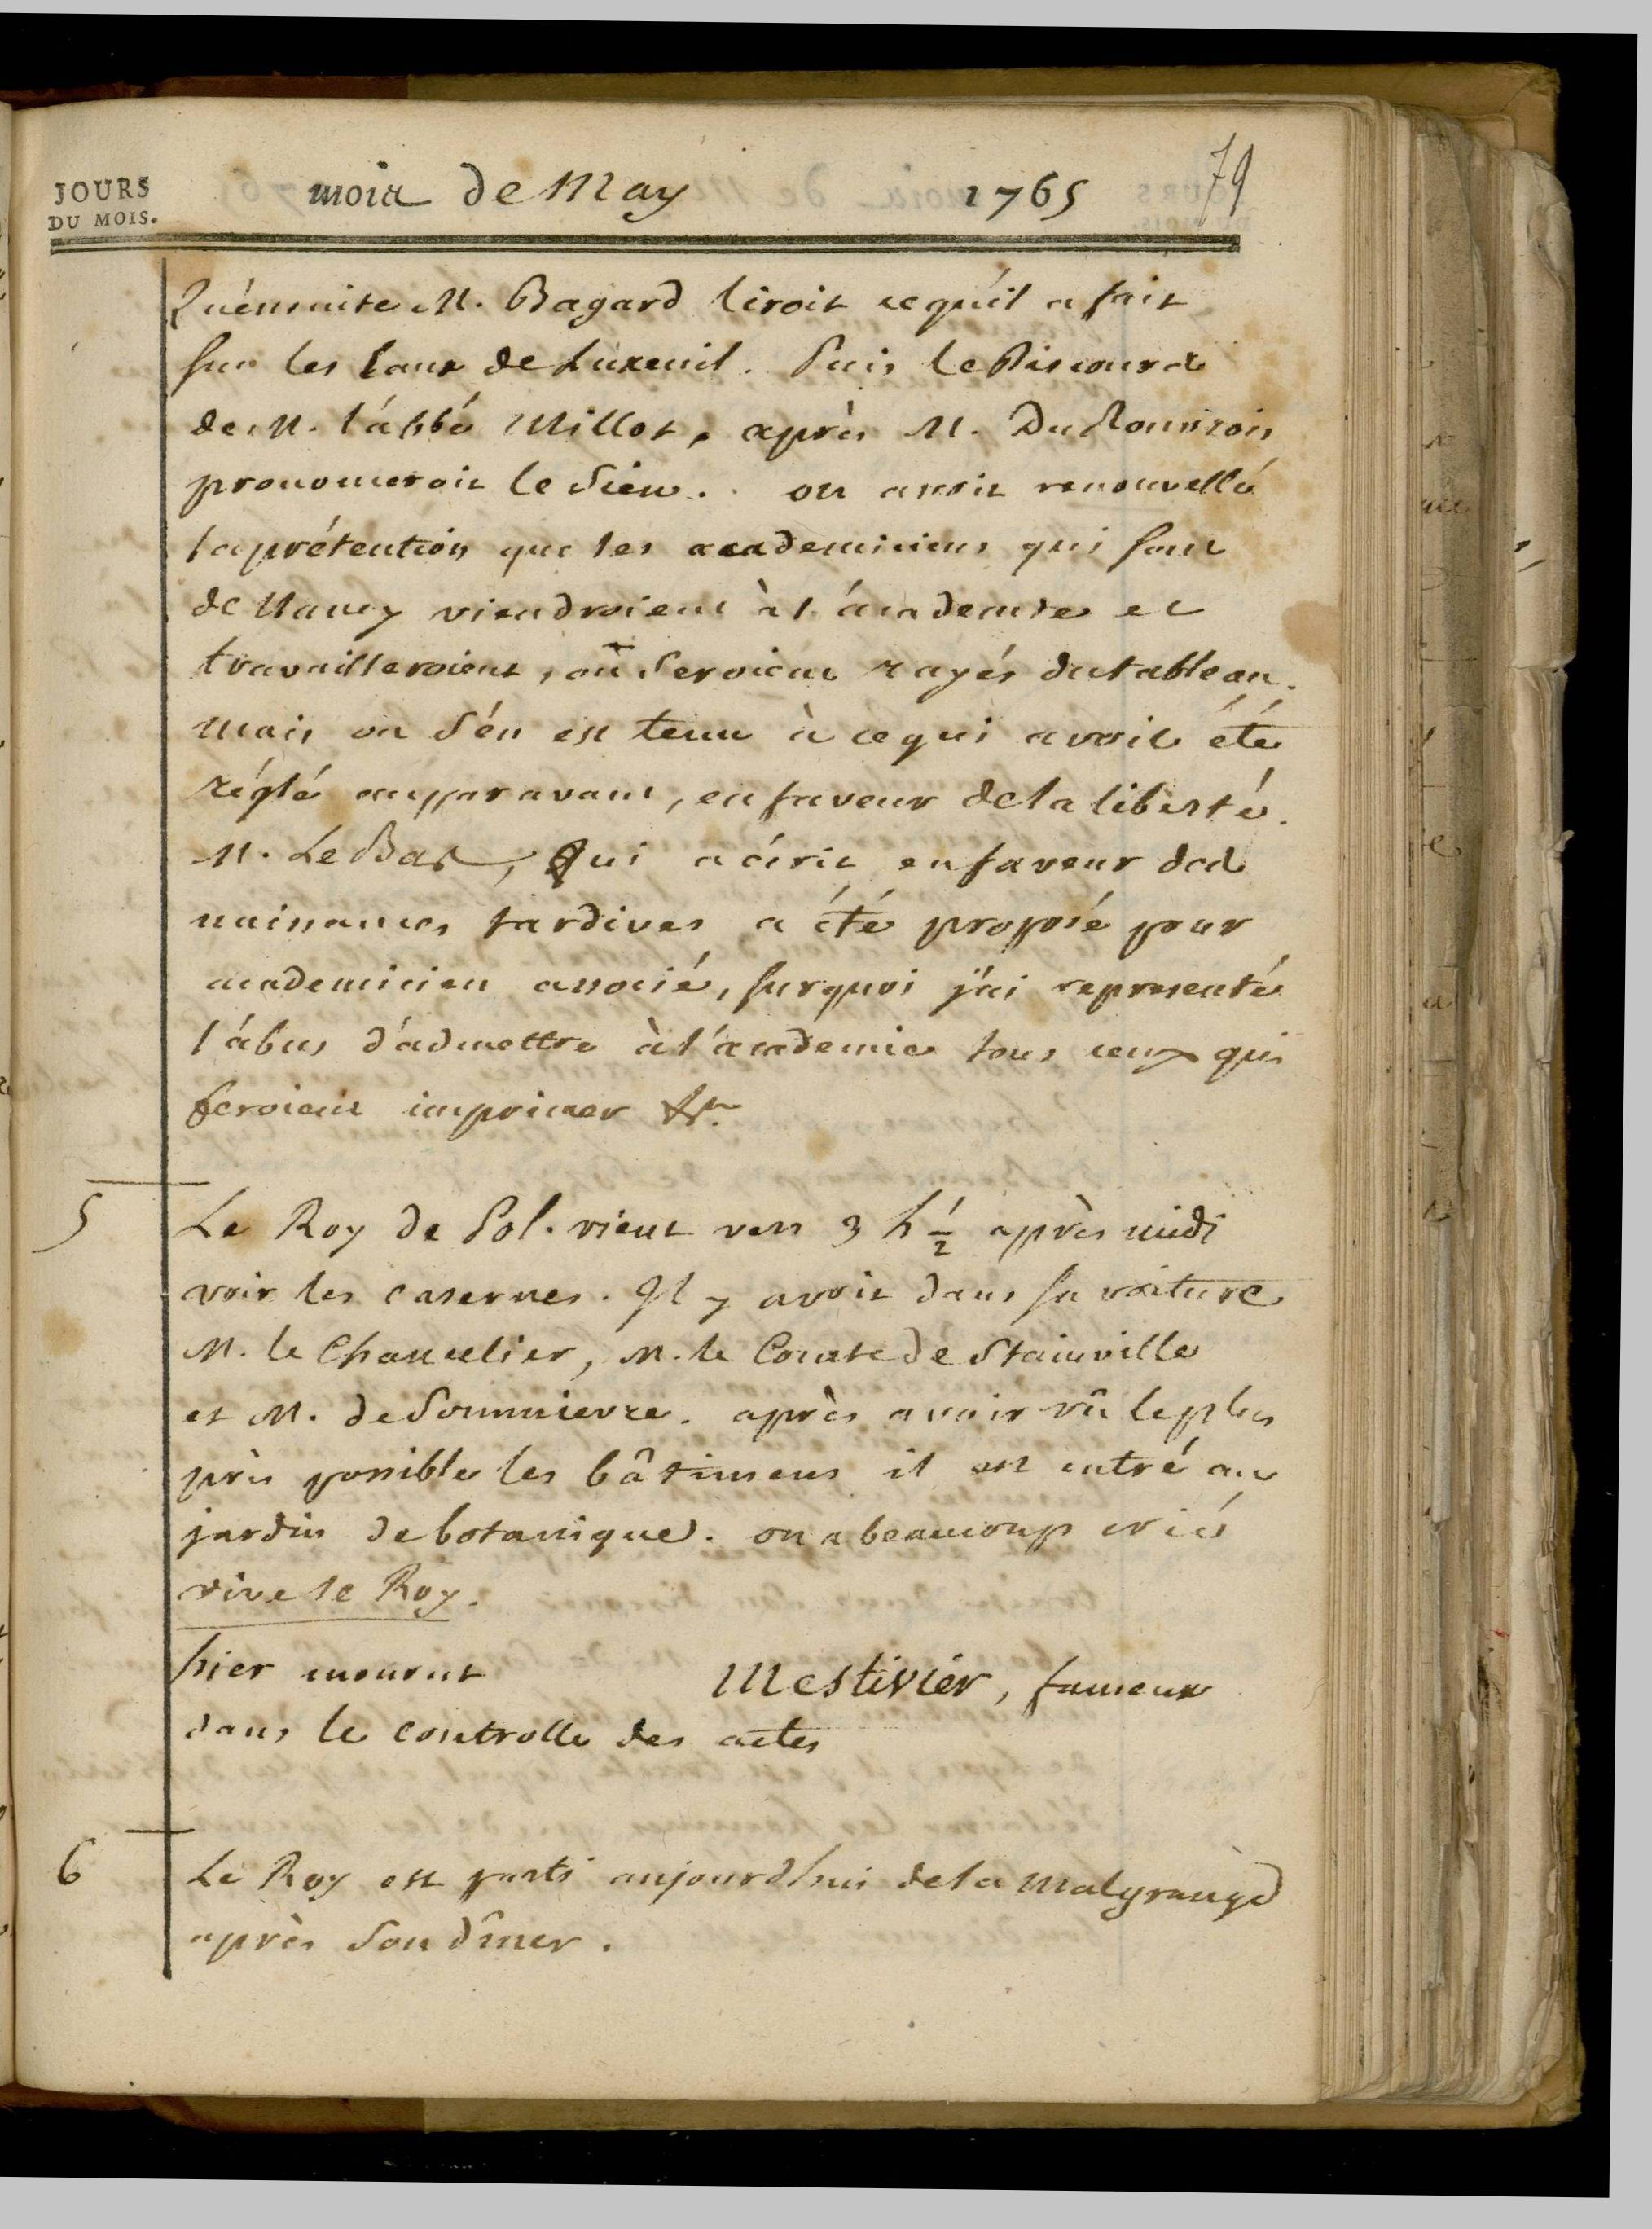 JOURS
DU MOIS.
mois de May 1765 79
Qu'ensuite M. Bagard liroit ce qu'il a fait
sur les Eaux de Luxeuil. Puis le Discours
de M. l'abbé Millot, après M. Du Rouvrois
prononceroit le Sien. on avoit renouvellé
la prétention que les academiciens qui sont
de Nancy viendroient à l'academie et
travailleroient, où Seroient rayés du tableau.
mais on S'en est tenu à ce qui avoit été
réglé auparavant, en faveur de la liberté.
M. Le Bas, Qui a écrit en faveur des
naissances tardives a été proposé pour
academicien associé, sur quoi j'ai representé
l'abus d'admettre à l'academie tous ceux qui
feroient imprimer &c.
5
Le Roy de Pol. vient vers 3 h ½ après midi
voir les casernes. Il y avoit dans sa voiture
M. le Chancelier, M. le Comte de Stainville
et M. de Sommievre. après avoir vû le plus
près possible les bâtimens il est entré au
jardin de botanique. on a beaucoup crié
vive le Roy.
hier mourut Mestivier, fameux
dans le controlle des actes
6
Le Roy est parti aujourd'hui de la Malgrange
après Son dîner.